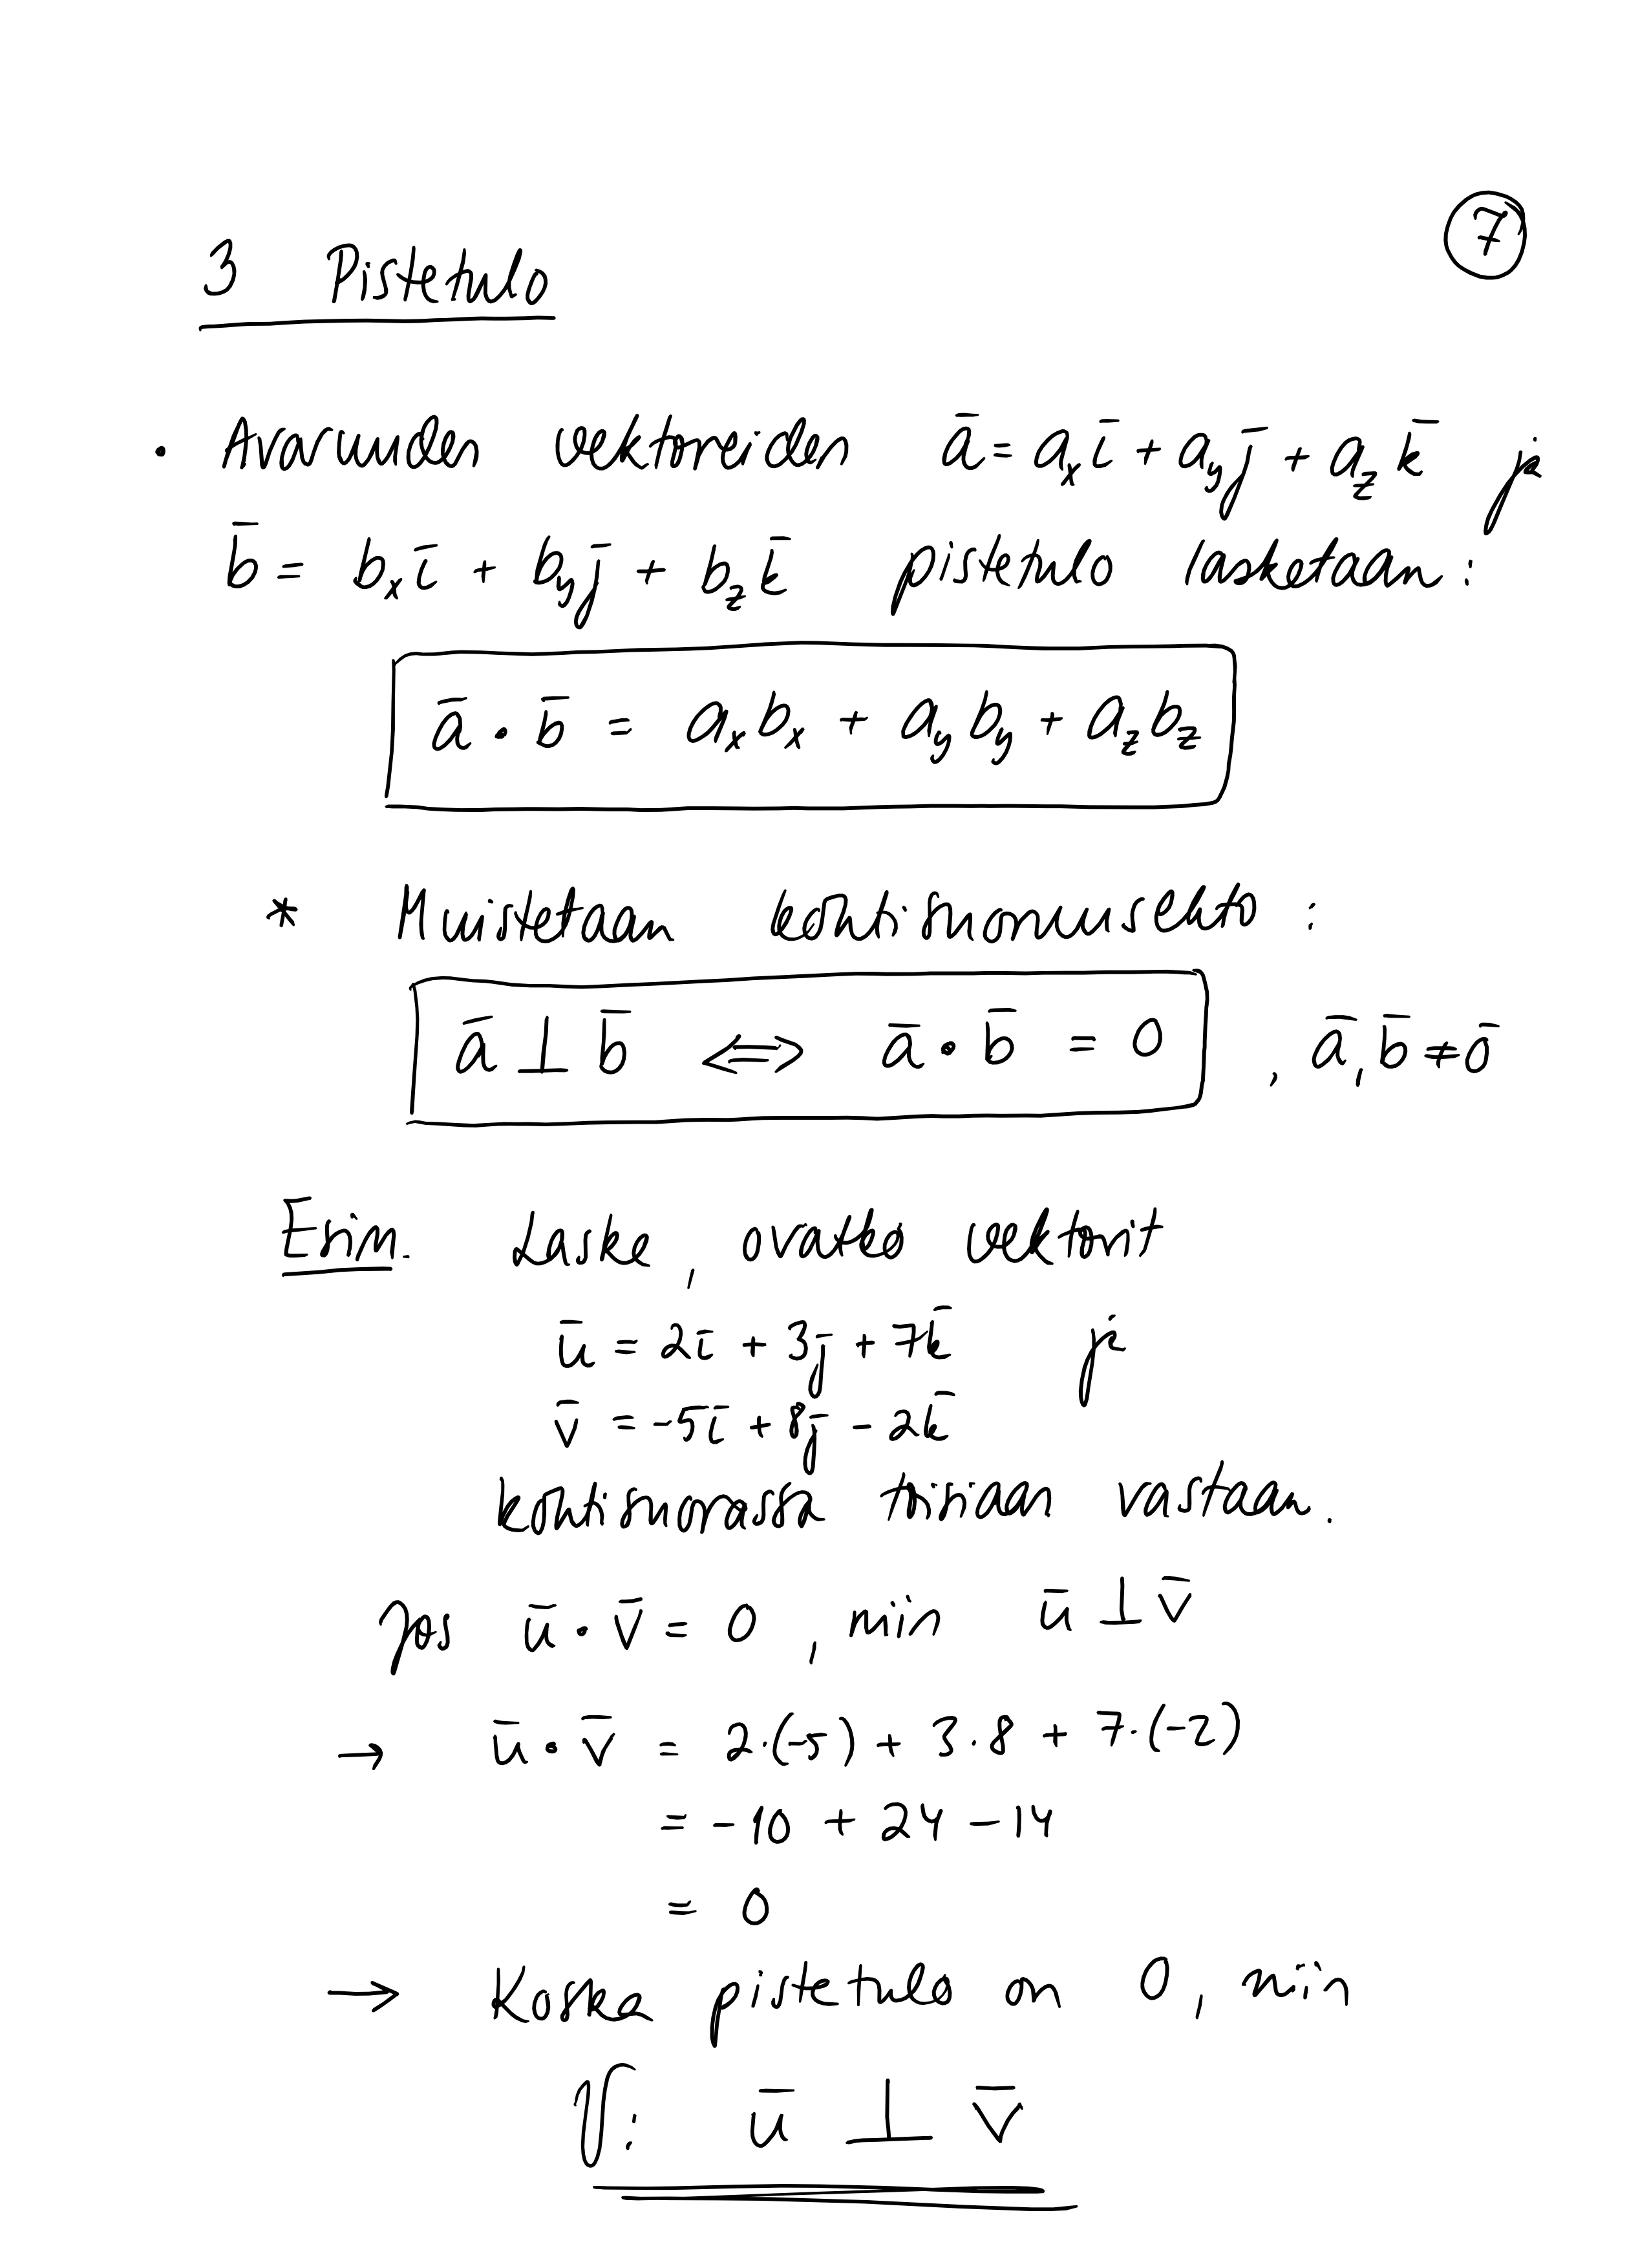 7
3 Pistetulo
• Avaruuden vektoreiden a̅ = aₓi̅ + a_y j̅ + a_z k̅ ja
b̅ = bₓi̅ + b_y j̅ + b_z k̅ pistetulo lasketaan:
a̅ · b̅ = aₓbₓ + a_y b_y + a_z b_z
* Muistetaan kohtisuoruusehto :
a̅ ⊥ b̅ ⇔ a̅ · b̅ = 0 , a̅, b̅ ≠ 0̅
Esim. Laske, ovatko vektorit
u̅ = 2i̅ + 3j̅ + 7k̅ ja
v̅ = -5i̅ + 8j̅ - 2k̅
kohtisuorassa toisiaan vastaan.
Jos u̅ · v̅ = 0 , niin u̅ ⊥ v̅
→ u̅ · v̅ = 2·(-5) + 3·8 + 7·(-2)
= -10 + 24 - 14
= 0
→ Koska pistetulo on 0, niin
V: u̅ ⊥ v̅